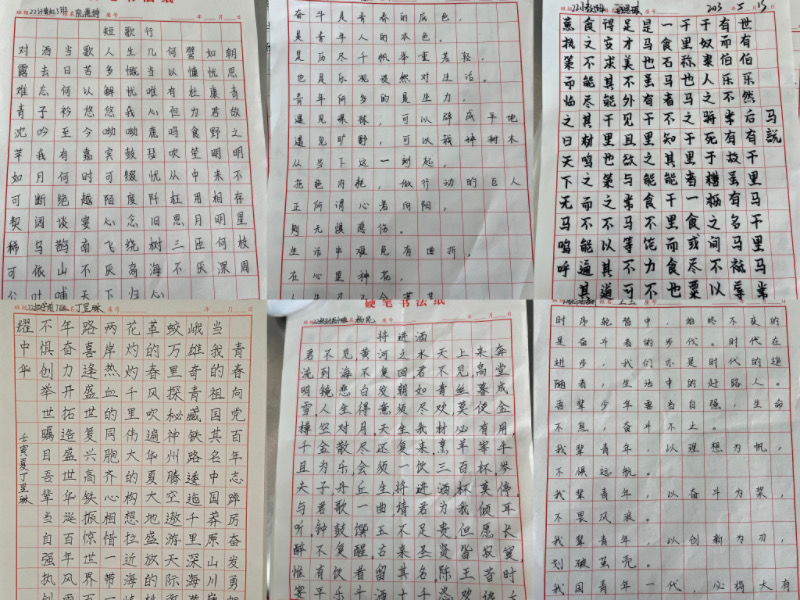 短歌行
对酒当歌人生几何譬如朝
露去日苦多慨当以慷忧思
难忘何以解忧唯有杜康青
青子衿悠悠我心但为君故
沈吟至今呦呦鹿鸣食野之
苹我有嘉宾鼓瑟吹笙明明
如月何时可掇忧从中来不
可断绝越陌度阡枉用相存
契阔谈宴心念旧恩月明星
稀乌鹊南飞绕树三匝何枝
可依山不厌高海不厌深周
公吐哺天下归心
奋斗是青春的底色，
是青年人的本色。
是历尽千帆举重若轻，
也是乐观淡然对生活。
青年所多的是生力，
遇见森林，可以辟成平地
遇见旷野，可以栽种树木
从当下这一刻起，
拒绝内耗，做行动的巨人
正所谓心若向阳，
则无惧悲伤。
生活中难免有曲折，
在心里种花，
马説
世有伯乐然后有千里马千里马
有而伯乐不常有故虽有名马祗辱
于奴隶人之骈死于槽枥之间不以
千里称也马之知里者一食或尽粟
是马也虽有千里之能食不饱力不
是才美不外见且欲与常马等不可
得安求其能千里也策之不以其道
食之不能尽其材鸣之而不能通其
意执策而临之曰天下无马呜呼其
青春向党百年志踔厉奋发勇
当我的祖国其名中国莽原山川
峨雄奇青藏铁路速追千里深海
蛟万里探秘神州腾空遨游天际
革的春风吹遍华夏大地盛放的
花灼灼千里伟大的构想拉近海
两岸热血的同胞齐心相惜一带
路喜逢盛世复兴高铁振惊世界
年奋力开拓造盛世华诞百年风
不惧创举世瞩目吾辈当自强执
耀中华
壬寅夏丁昱琳
硬笔书法纸
将进酒
君不见黄河之水天上来奔
流到海不复回君不见高堂
明镜悲白发朝如青丝暮成
雪人生得意须尽欢莫使金
樽空对月天生我材必有用
千金散尽还复来烹羊宰牛
且为乐会须一饮三百杯岑
夫子丹丘生将进酒杯莫停
与君歌一曲请君为我倾耳
听钟鼓馔玉不足贵但愿长
醉不复醒古来圣贤皆寂寞
惟有饮者留其名陈王昔时
宴平乐斗酒十千恣欢谑
时序轮替中，始终不变的
是奋斗者的步伐。时代在
进步，我们亦是时代的追
随者，生活中的赶路人。
吾辈少年要当自强，生命
不息，奋斗不止。
我辈青年，以理想为帆，
不惧远航。
我辈青年，以奋斗为桨，
不畏风浪。
我辈青年，以创新为刃，
划破茧壳。
我国青年一代，必将大有